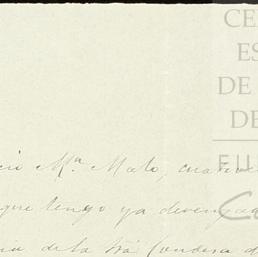 CE
ES
DE
DE
FIL
cio Mª Malo, cuare
que tengo ya devenga
ria de la Sra (condesa d